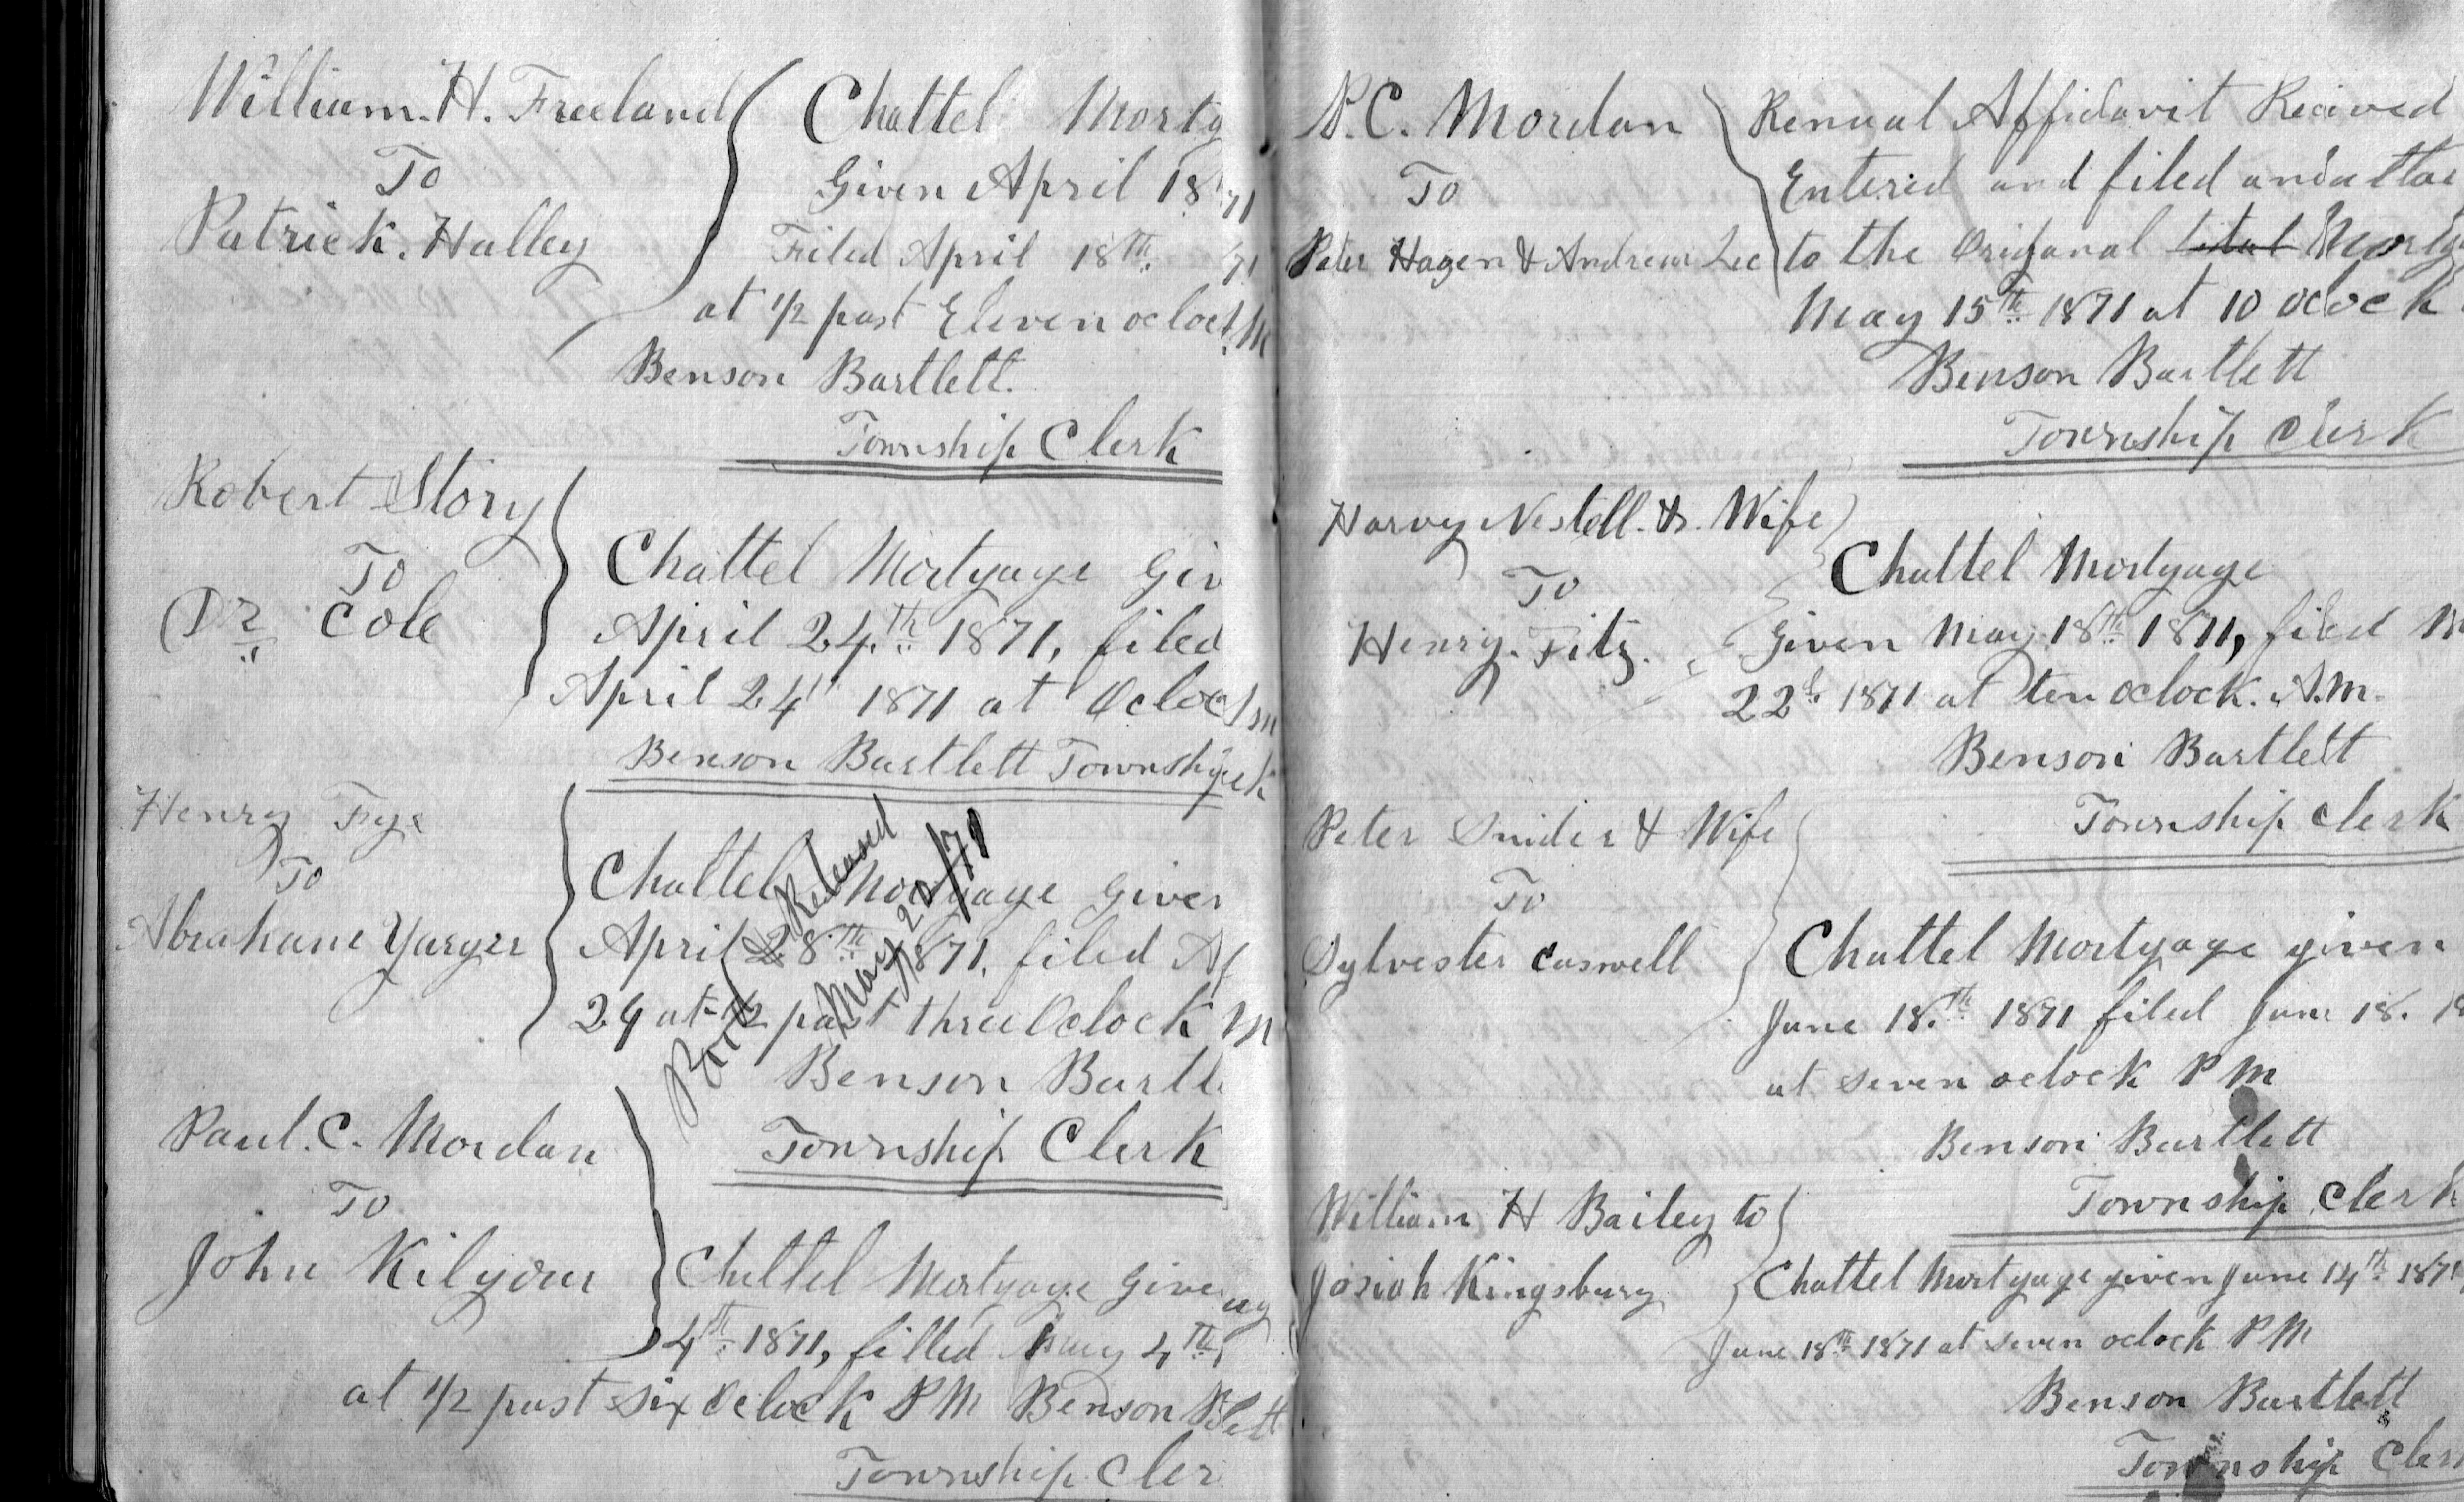 William. H. Freeland
To
Patrick. Halley
Chattel Mortg
Given April 18 71
Filed April 18th 71
at 1/2 past Eleven oclock M
Benson Bartlett.
Township Clerk
Robert Story
To
Dr Cole
Chattel Mortgage Giv
April 24th 1871, filed
April 24 1871 at Oclock M
Benson Bartlett Township
Henry Fye
To
Abraham Yarger
Chattel Mortgage Given
April 28th 1871, filed Ap
29 at 1/2 past three Oclock M
Benson Bartl
Township Clerk
Part Released
May 22/71
Paul. C. Mordan
To
John Kilgour
Chattel Mortgage Give
4th 1871, filled May 4th
at 1/2 past six Oclock PM Benson Blett
Township Cler
P.C. Mordan
To
Peter Hagen & Andrew Lee
Renual Affidavit Recived
Entered and filed and attac
to the Origanal Mortg
May 15th 1871 at 10 oclock
Benson Bartlett
Township Clerk
Harvy Nestell. & Wife
To
Henry. Fitz.
Chattel Mortgage
Given May 18th 1871, filed M
22d 1871 at ten oclock. A.M.
Benson Bartlett
Township Clerk
Peter Snider & Wife
To
Sylvester Caswell
Chattel Mortgage given
June 18.th 1871 filed June 18. 18
at seven oclock PM
Benson Bartlett
Township Clerk
William H Bailey to
Josiah Kingsbury
Chattel Mortgage given June 14th 1871
June 18th 1871 at seven oclock PM
Benson Bartlett
Township Cler